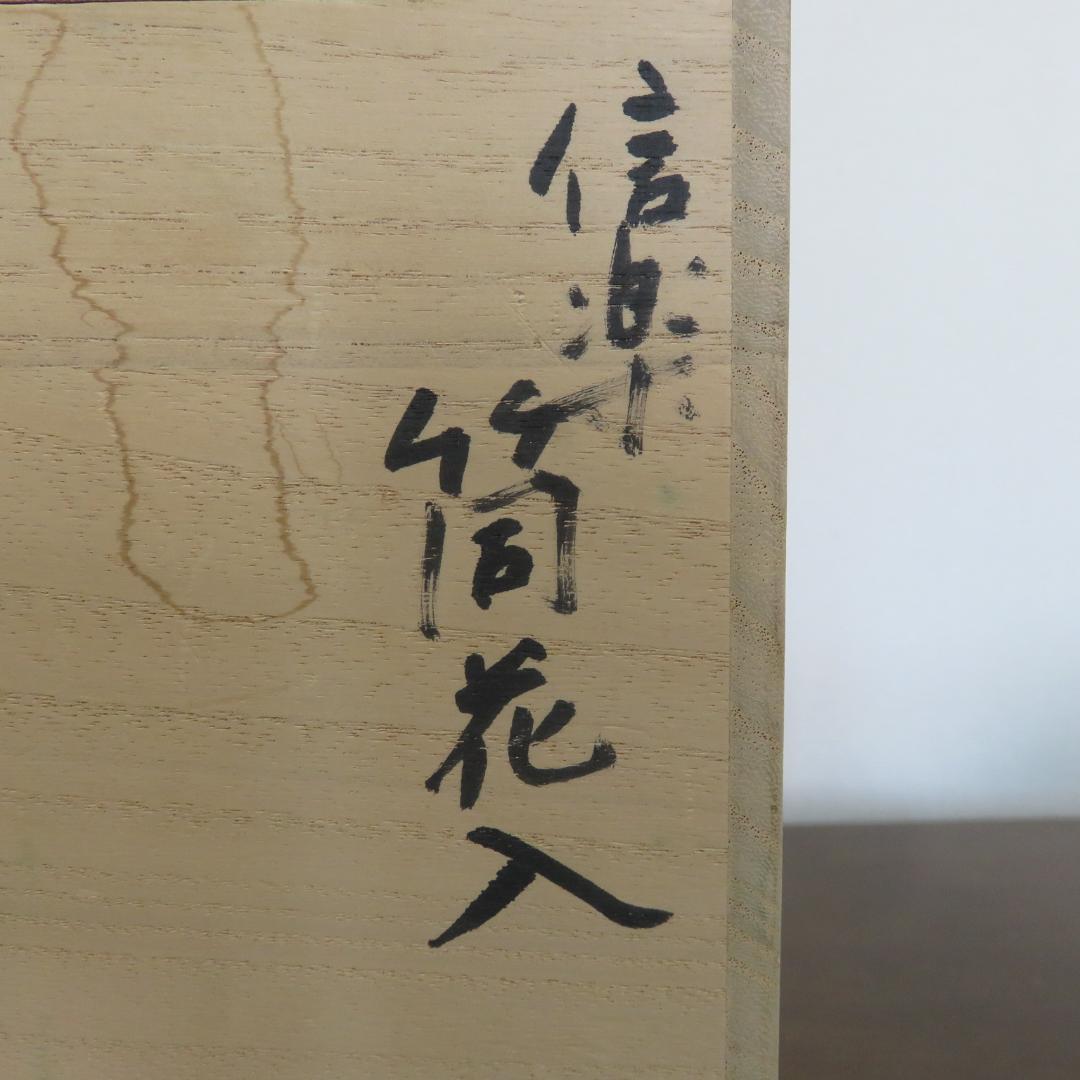 信楽
筒花入